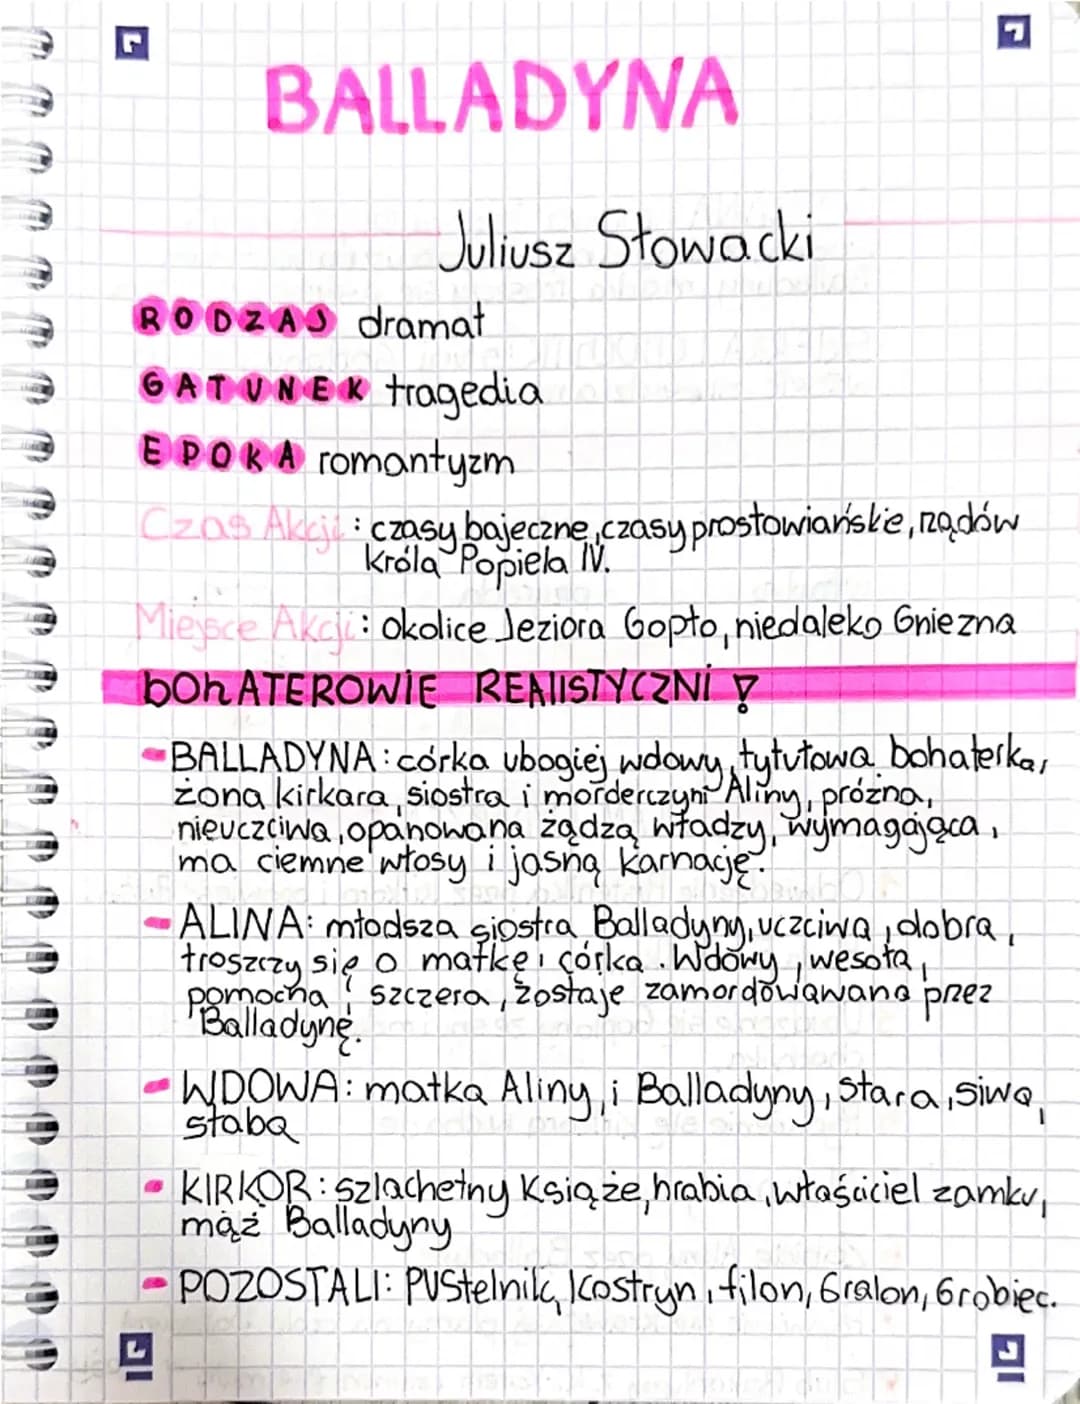 BALLADYNA
Juliusz Słowacki
RODZAJ dramat
GATUNEK tragedia
EPOKA romantyzm
Czas Akcji: czasy bajeczne, czasy prosłowiańskie, rządów
króla Popiela IV.
Miejsce Akcji: okolice Jeziora Gopło, niedaleko Gniezna
bohATEROWIE REAlISTYCZNi !
- BALLADYNA: córka ubogiej wdowy, tytułowa bohaterka,
żona kirkara, siostra i morderczyni Aliny, próżna,
nieuczciwa, opanowana żądzą władzy, wymagająca,
ma ciemne włosy i jasną karnację.
- ALINA: młodsza siostra Balladyny, uczciwa, dobra,
troszczy się o matkę, córka Wdowy, wesoła,
pomocna, szczera, zostaje zamordowawana przez
Balladynę.
- WDOWA: matka Aliny, i Balladyny, stara, siwa,
słaba
- KIRKOR: szlachetny Książe, hrabia, właściciel zamku,
mąż Balladyny
- POZOSTALI: PUStelnik, Kostryn, filon, Gralon, Grobiec.